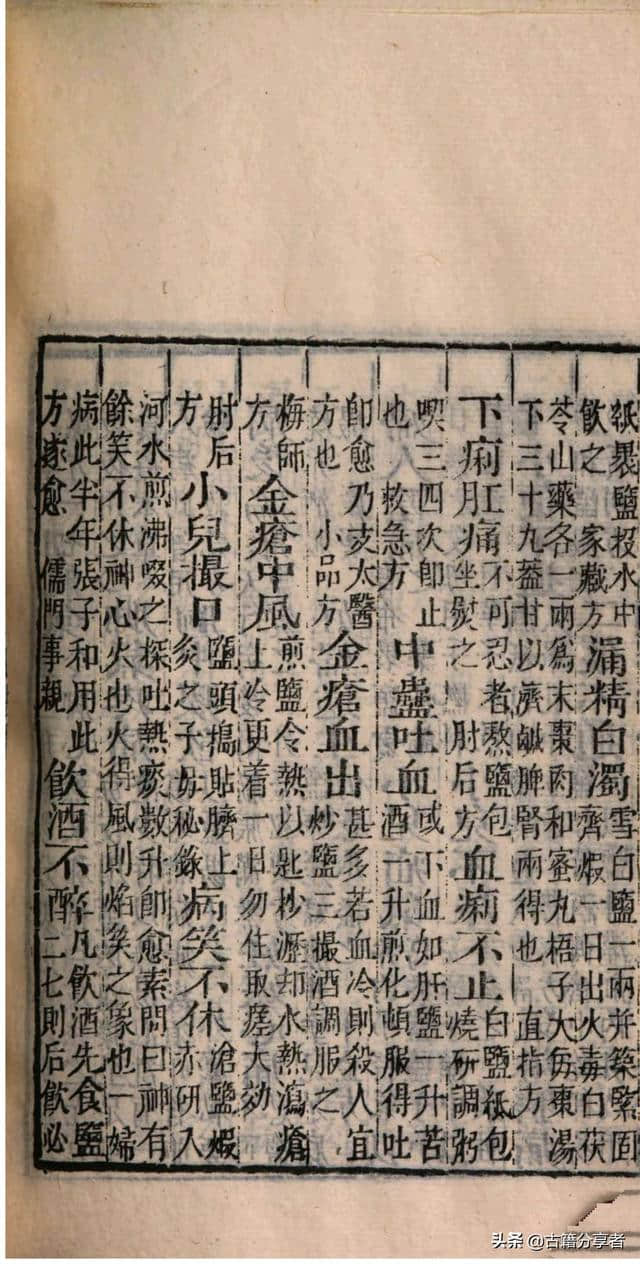 紙裹鹽投水中
飲之 家藏方
漏精白濁
雪白鹽一兩并築緊固
濟煆一日出火毒白茯
苓山藥各一兩爲末棗肉和蜜丸梧子大每棗湯
下三十九蓋甘以濟鹹脾腎兩得也 直指方
下痢肛痛
不可忍者熬鹽包
坐熨之 肘后方
血痢不止
白鹽紙包
燒研調粥
喫三四次即止
也 救急方
中蠱吐血
或下血如肝鹽一升苦
酒一升煎化頓服得吐
即愈乃支太醫
方也 小品方
金瘡血出
甚多若血冷則殺人宜
炒鹽三撮酒調服之
梅師
方
金瘡中風
煎鹽令熱以匙杪瀝却水熱瀉瘡
上冷更着一日勿住取瘥大効
肘后
方
小兒撮口
鹽頭搗貼臍上
灸之子母秘錄
病笑不休
滄鹽煆
赤研入
河水煎沸啜之探吐熱痰數升即愈素問曰神有
餘笑不休神心火也火得風則焰矣之象也一婦
病此半年張子和用此
方遂愈 儒門事親
飲酒不醉
凡飲酒先食鹽
二七則后飲必
头条 @古籍分享者